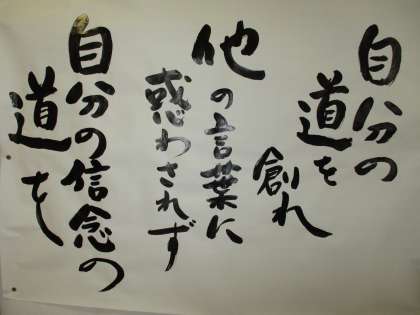 自分の
道を
創れ
他の言葉に
惑わされず
自分の信念の
道を